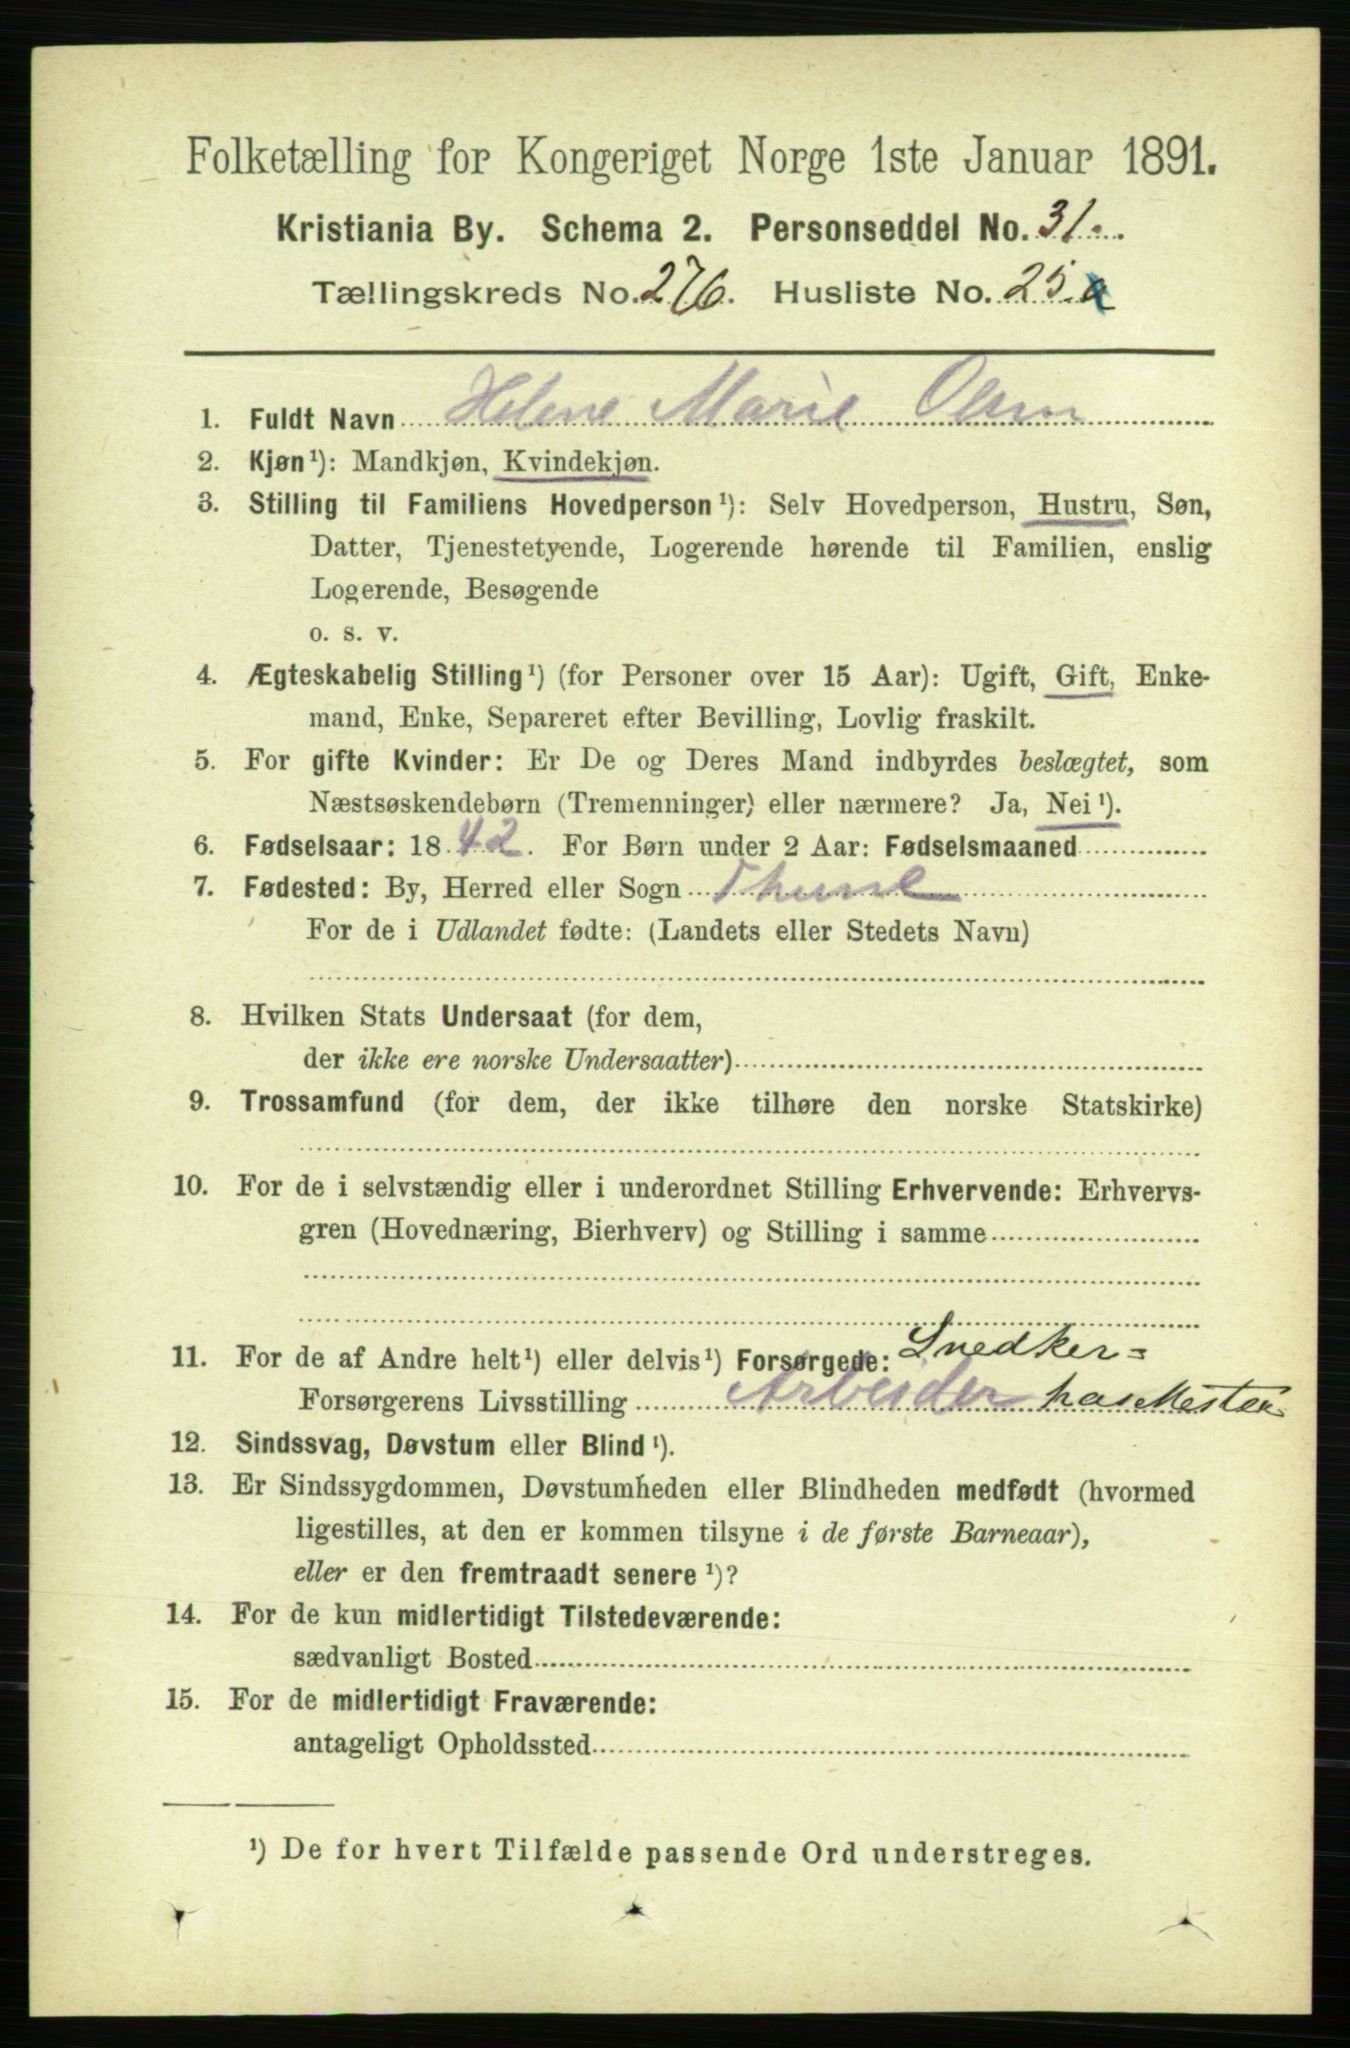 Folketælling for Kongeriget Norge 1ste Januar 1891.
Kristiania By. Schema 2. Personseddel No. 31.
Tællingskreds No. 276. Husliste No. 25 a
1. Fuldt Navn Helene Marie Olsen
2. Kjøn¹): Mandkjøn, Kvindekjøn.
3. Stilling til Familiens Hovedperson¹): Selv Hovedperson, Hustru, Søn,
Datter, Tjenestetyende, Logerende hørende til Familien, enslig
Logerende, Besøgende
o. s. v.
4. Ægteskabelig Stilling¹) (for Personer over 15 Aar): Ugift, Gift, Enke-
mand, Enke, Separeret efter Bevilling, Lovlig fraskilt.
5. For gifte Kvinder: Er De og Deres Mand indbyrdes beslægtet, som
Næstsøskendebørn (Tremenninger) eller nærmere? Ja, Nei¹).
6. Fødselsaar: 1842. For Børn under 2 Aar: Fødselsmaaned
7. Fødested: By, Herred eller Sogn
For de i Udlandet fødte: (Landets eller Stedets Navn)
8. Hvilken Stats Undersaat (for dem,
der ikke ere norske Undersaatter)
9. Trossamfund (for dem, der ikke tilhøre den norske Statskirke)
10. For de i selvstændig eller i underordnet Stilling Erhvervende: Erhvervs-
gren (Hovednæring, Bierhverv) og Stilling i samme
11. For de af Andre helt¹) eller delvis¹) Forsørgede: Snedker=
Forsørgerens Livsstilling Arbeider hos Mester
12. Sindssvag, Døvstum eller Blind¹).
13. Er Sindssygdommen, Døvstumheden eller Blindheden medfødt (hvormed
ligestilles, at den er kommen tilsyne i de første Barneaar),
eller er den fremtraadt senere¹)?
14. For de kun midlertidigt Tilstedeværende:
sædvanligt Bosted
15. For de midlertidigt Fraværende:
antageligt Opholdssted
¹) De for hvert Tilfælde passende Ord understreges.